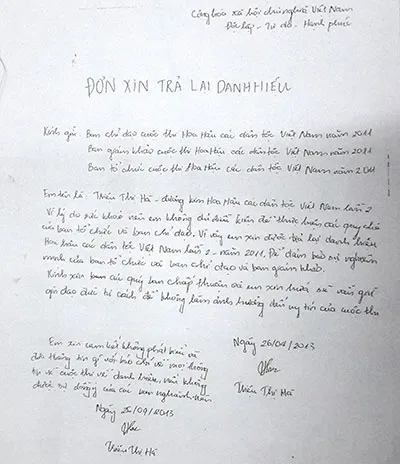 Cộng hòa xã hội chủ nghĩa Việt Nam
Độc lập - Tự do - Hạnh phúc
ĐƠN XIN TRẢ LẠI DANH HIỆU
Kính gửi: Ban chỉ đạo cuộc thi Hoa Hậu các dân tộc Việt Nam năm 2011
Ban giám khảo cuộc thi Hoa Hậu các dân tộc Việt Nam năm 2011
Ban tổ chức cuộc thi Hoa Hậu các dân tộc Việt Nam năm 2011
Em tên là: Triệu Thị Hà - đương kim Hoa Hậu các dân tộc Việt Nam lần 2
Vì lý do sức khoẻ nên em không đủ điều kiện để thực hiện các quy chế
của ban tổ chức và ban chỉ đạo. Vì vậy em xin được trả lại danh hiệu
Hoa hậu các dân tộc Việt Nam lần 2 - năm 2011. Để đảm bảo sự nghiêm
minh của ban tổ chức và ban chỉ đạo và ban giám khảo.
Kính xin ban các quý ban chấp thuận và em xin hứa sẽ vẫn giữ
gìn đạo đức tư cách để không làm ảnh hưởng đến uy tín của cuộc thi
Em xin cam kết không phát biểu và
đưa thông tin gì với báo chí về mọi thông
tin về cuộc thi về danh hiệu nếu không
được sự đồng ý của các ban
Ngày 26/04/2013
Triệu Thị Hà
Ngày /09/2013
Triệu Thị Hà